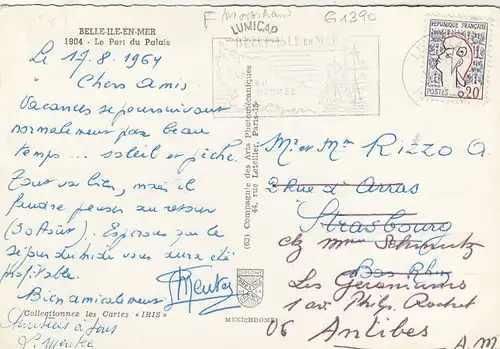 F Morbihan
G1390
BELLE-ILE-EN-MER
1904 - Le Port du Palais
LUMICAP
BELLE-ISLE EN MER
REPUBLIQUE FRANCAISE
POSTES 0,20
Le 17.8.1964
Chers Amis
Vacances se poursuivant
normalement par beau
temps... soleil et pêche.
Tout va bien, mais il
faudra penser au retour
(30 Août). Espérons que le
séjour du midi vous aura été
profitable.
Bien amicalement
Amitiés à tous
Collectionnez les Cartes "IRIS"
(63) Compagnie des Arts Photomécaniques
44, rue Letellier, Paris-15
MEXICHROME
Mr et Mme RIZZO A.
2 Rue d'Arras
Strasbourg
Bas Rhin
chz Mme Schmutz
Les Geraniums
1 av. Philip. Rochat
06 Antibes
A.M.